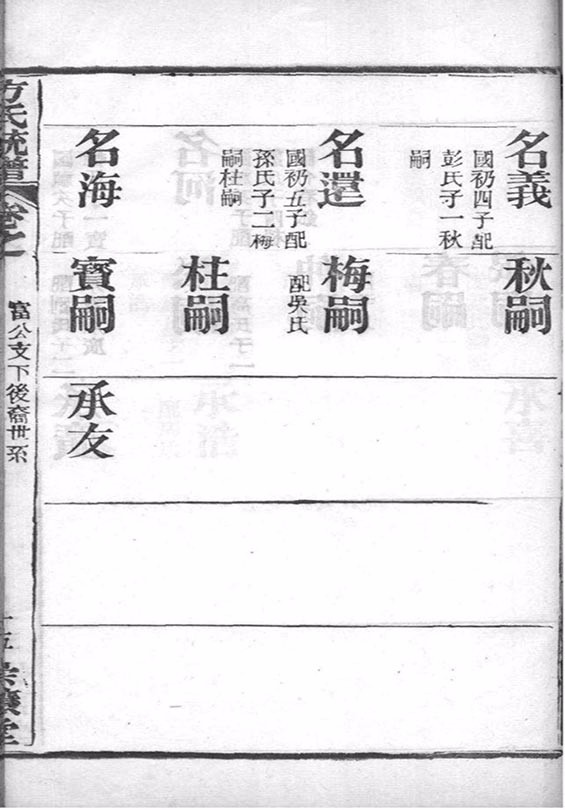 名義
國初四子配
彭氏子一秋
嗣
秋嗣
名還
國初五子配
孫氏子二梅
嗣柱嗣
梅嗣
配吳氏
柱嗣
名海
寶嗣
承友
方氏統譜
卷之一
富公支下後裔世系